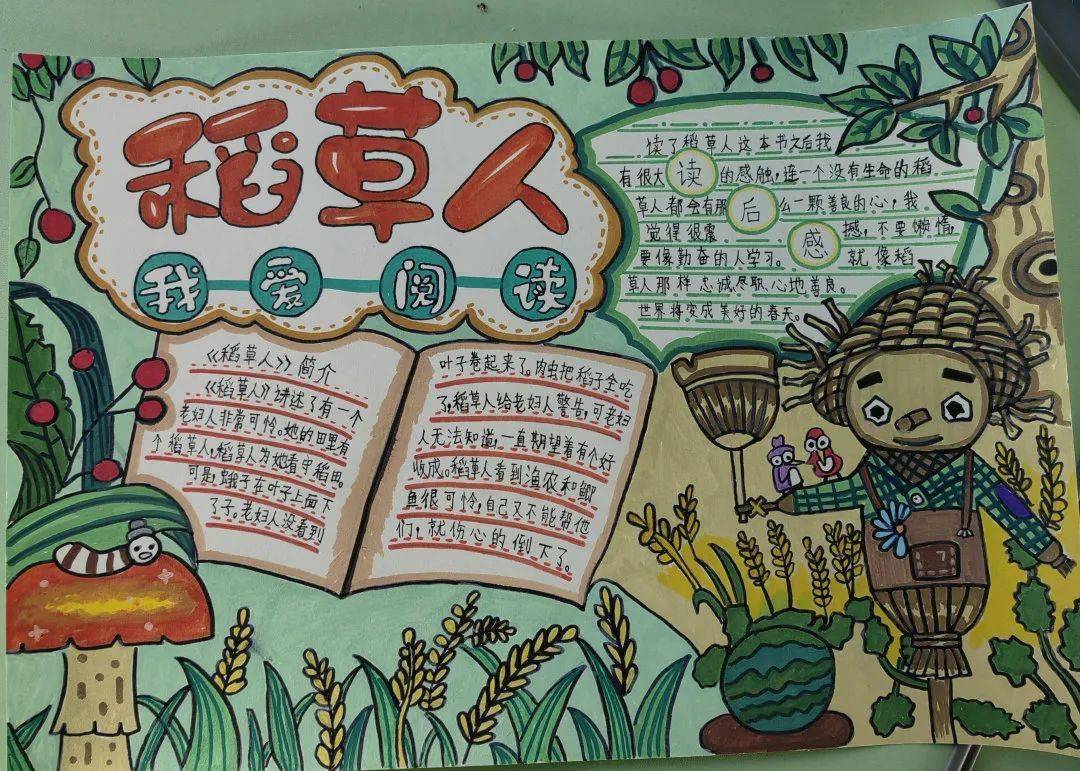 稻草人
我爱阅读
读了稻草人这本书之后我
有很大的感触,连一个没有生命的稻
草人都会有那么一颗善良的心,我
觉得很震撼,不要懒惰,
要像勤奋的人学习。就像稻
草人那样忠诚尽职,心地善良。
世界将变成美好的春天。
读
后
感
《稻草人》简介
《稻草人》讲述了有一个
老妇人非常可怜。她的田里有
个稻草人,稻草人为她看守稻田。
可是蛾子在叶子上面下
了子。老妇人没看到
叶子卷起来了。肉虫把稻子全吃
了,稻草人给老妇人警告,可老妇
人无法知道,一直期望着有个好
收成。稻草人看到渔农和鲫
鱼很可怜,自己又不能帮他
们,就伤心的倒下了。